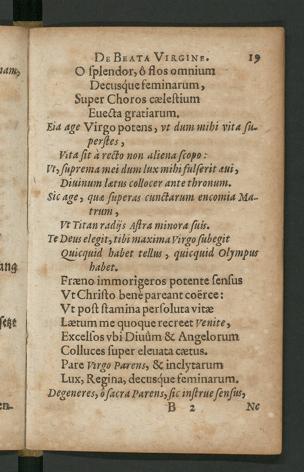 nam,
ang
setze
en-
DE BEATA VIRGINE. 19
O splendor, ô flos omnium
Decusque feminarum,
Super Choros cælestium
Euecta gratiarum.
Eia age Virgo potens, vt dum mihi vita su-
perstes,
Vita sit à recto non aliena scopo:
Vt, suprema mei dum lux mihi fulserit æui,
Diuinum lætus collocer ante thronum.
Sic age, quæ superas cunctarum encomia Ma-
trum,
Vt Titan radijs Astra minora suis.
Te Deus elegit, tibi maxima Virgo subegit
Quicquid habet tellus, quicquid Olympus
habet.
Fræno immorigeros potente sensus
Vt Christo bene pareant coërce:
Vt post stamina persoluta vitæ
Lætum me quoque recreet Venite,
Excelsos vbi Diuûm & Angelorum
Colluces super eleuata cœtus.
Pare Virgo Parens, & inclytarum
Lux, Regina, decusque feminarum.
Degeneres, ô sacra Parens, sic instrue sensus,
B 2 Ne